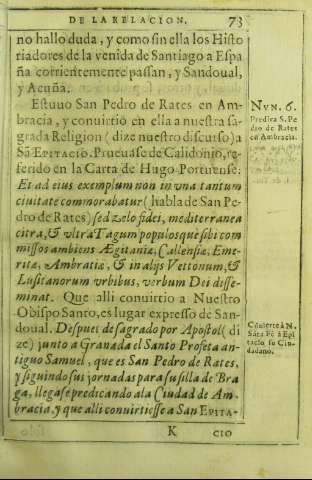 DE LA RELACION. 73
no hallo duda, y como sin ella los Histo
riadores de la venida de Santiago a Espa
ña corrientemente passan, y Sandoual,
y Acuña.
Estuuo San Pedro de Rates en Am-
bracia, y conuirtiò en ella a nuestra sa-
grada Religion (dize nuestro discurso) a
Sã EPITACIO. Prueuase de Calidonio, re-
ferido en la Carta de Hugo Portuense:
Et ad eius exemplum non in vna tantum
ciuitate commorabatur (habla de San Pe-
dro de Rates) sed zelo fidei, mediterranea
citra, & vltra Tagum populosque sibi com
missos ambiens Ægitaniæ, Callensiæ, Eme-
ritæ, Ambratiæ, & in alijs Vettonum, &
Lusitanorum vrbibus, verbum Dei disse-
minat. Que alli conuirtio a Nuestro
Obispo Santo, es lugar expresso de San-
doual. Despues de sagrado por Apostol (di
ze) junto a Granada el Santo Profeta an-
tiguo Samuel, que es San Pedro de Rates,
y siguiendo sus jornadas para su silla de Bra
ga, llegasse predicando ala Ciudad de Am-
bracia, y que alli conuirtiesse a San EPITA-
K CIO
NVN. 6.
Predica S. Pe
dro de Rates
en Ambracia.
Cõuierte à N.
Sãta Fè à Epi
tacio su Ciu-
dadano.